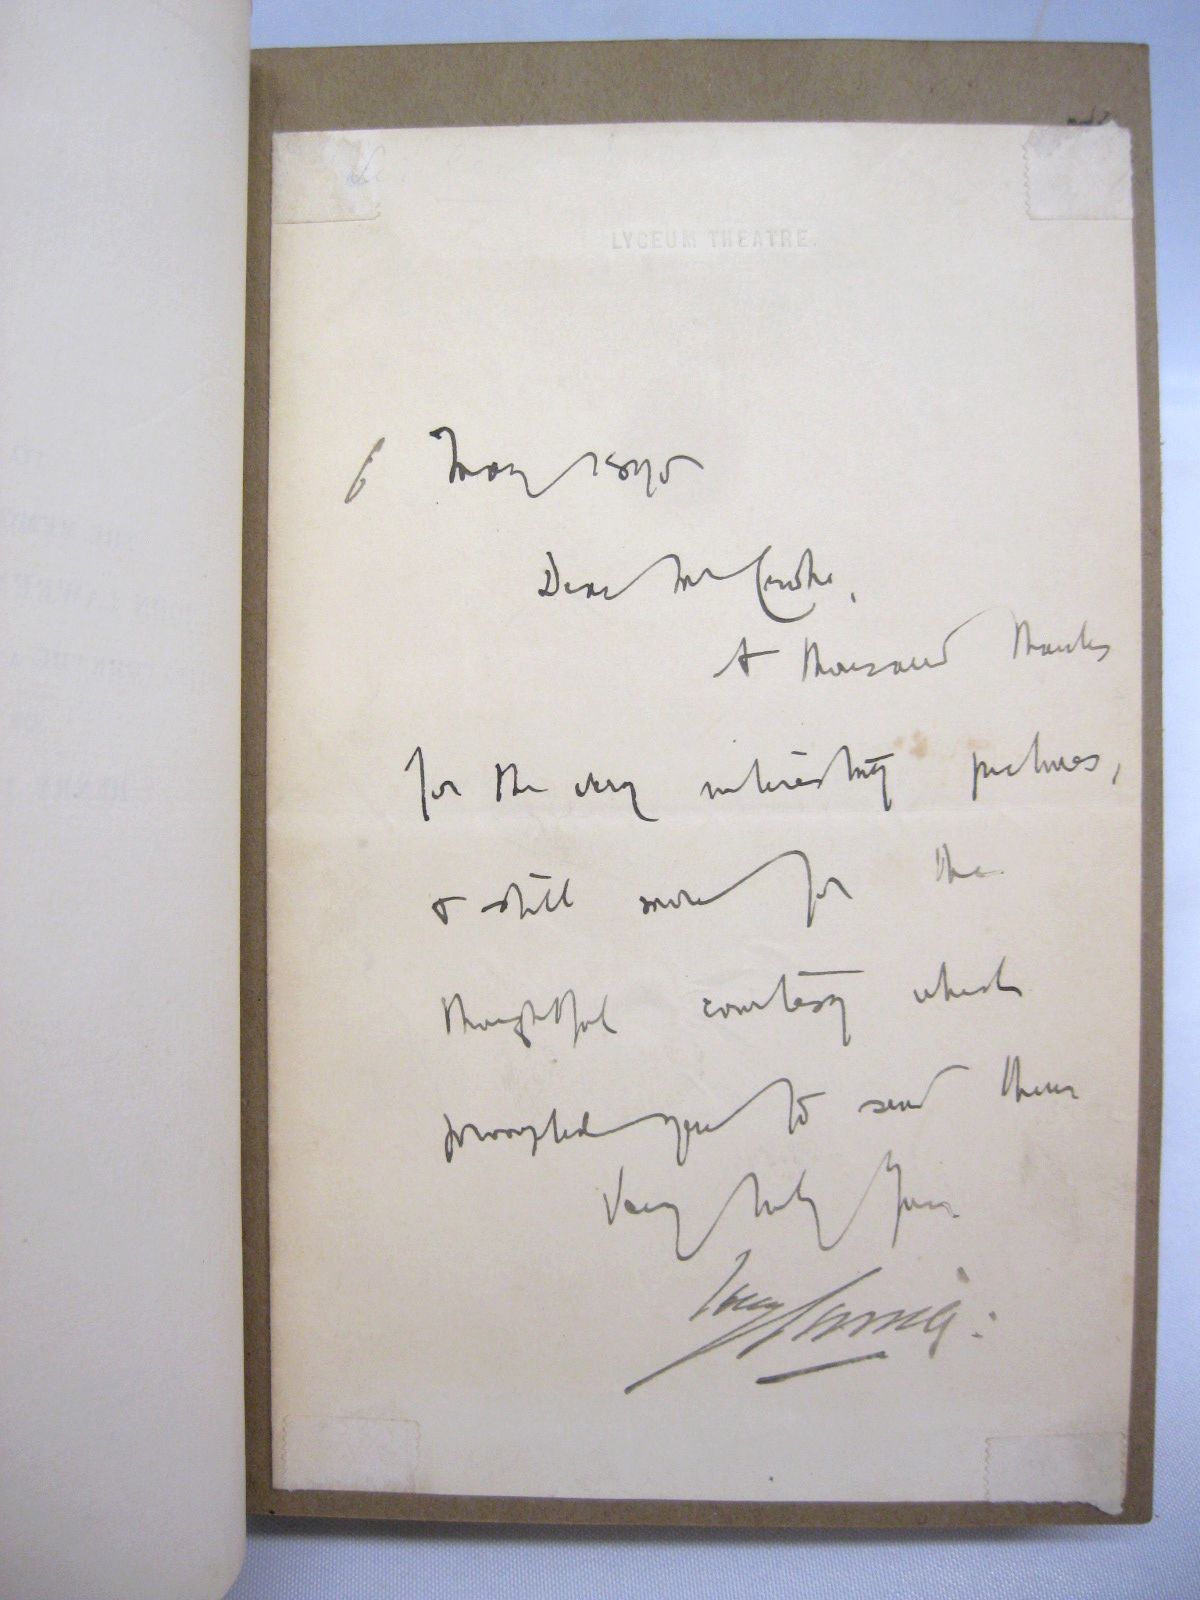 LYCEUM THEATRE.
6 May 1895
Dear Mr
A thousand thanks
for the very interesting pictures,
& still more for the
thoughtful courtesy which
prompted you to send them
Very truly Yours
Henry Irving